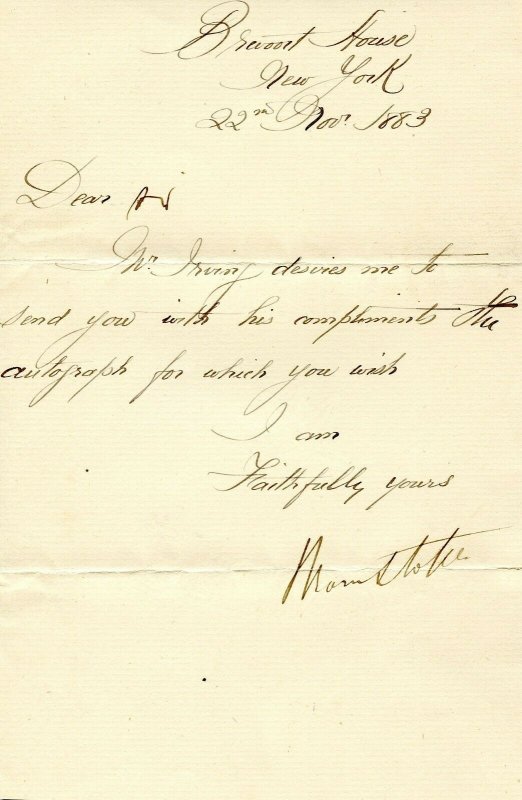 Brevoort House
New York
22nd Novr. 1883
Dear Sir
Mr. Irving desires me to
send you with his compliments the
autograph for which you wish
I am
Faithfully yours
Bram Stoker